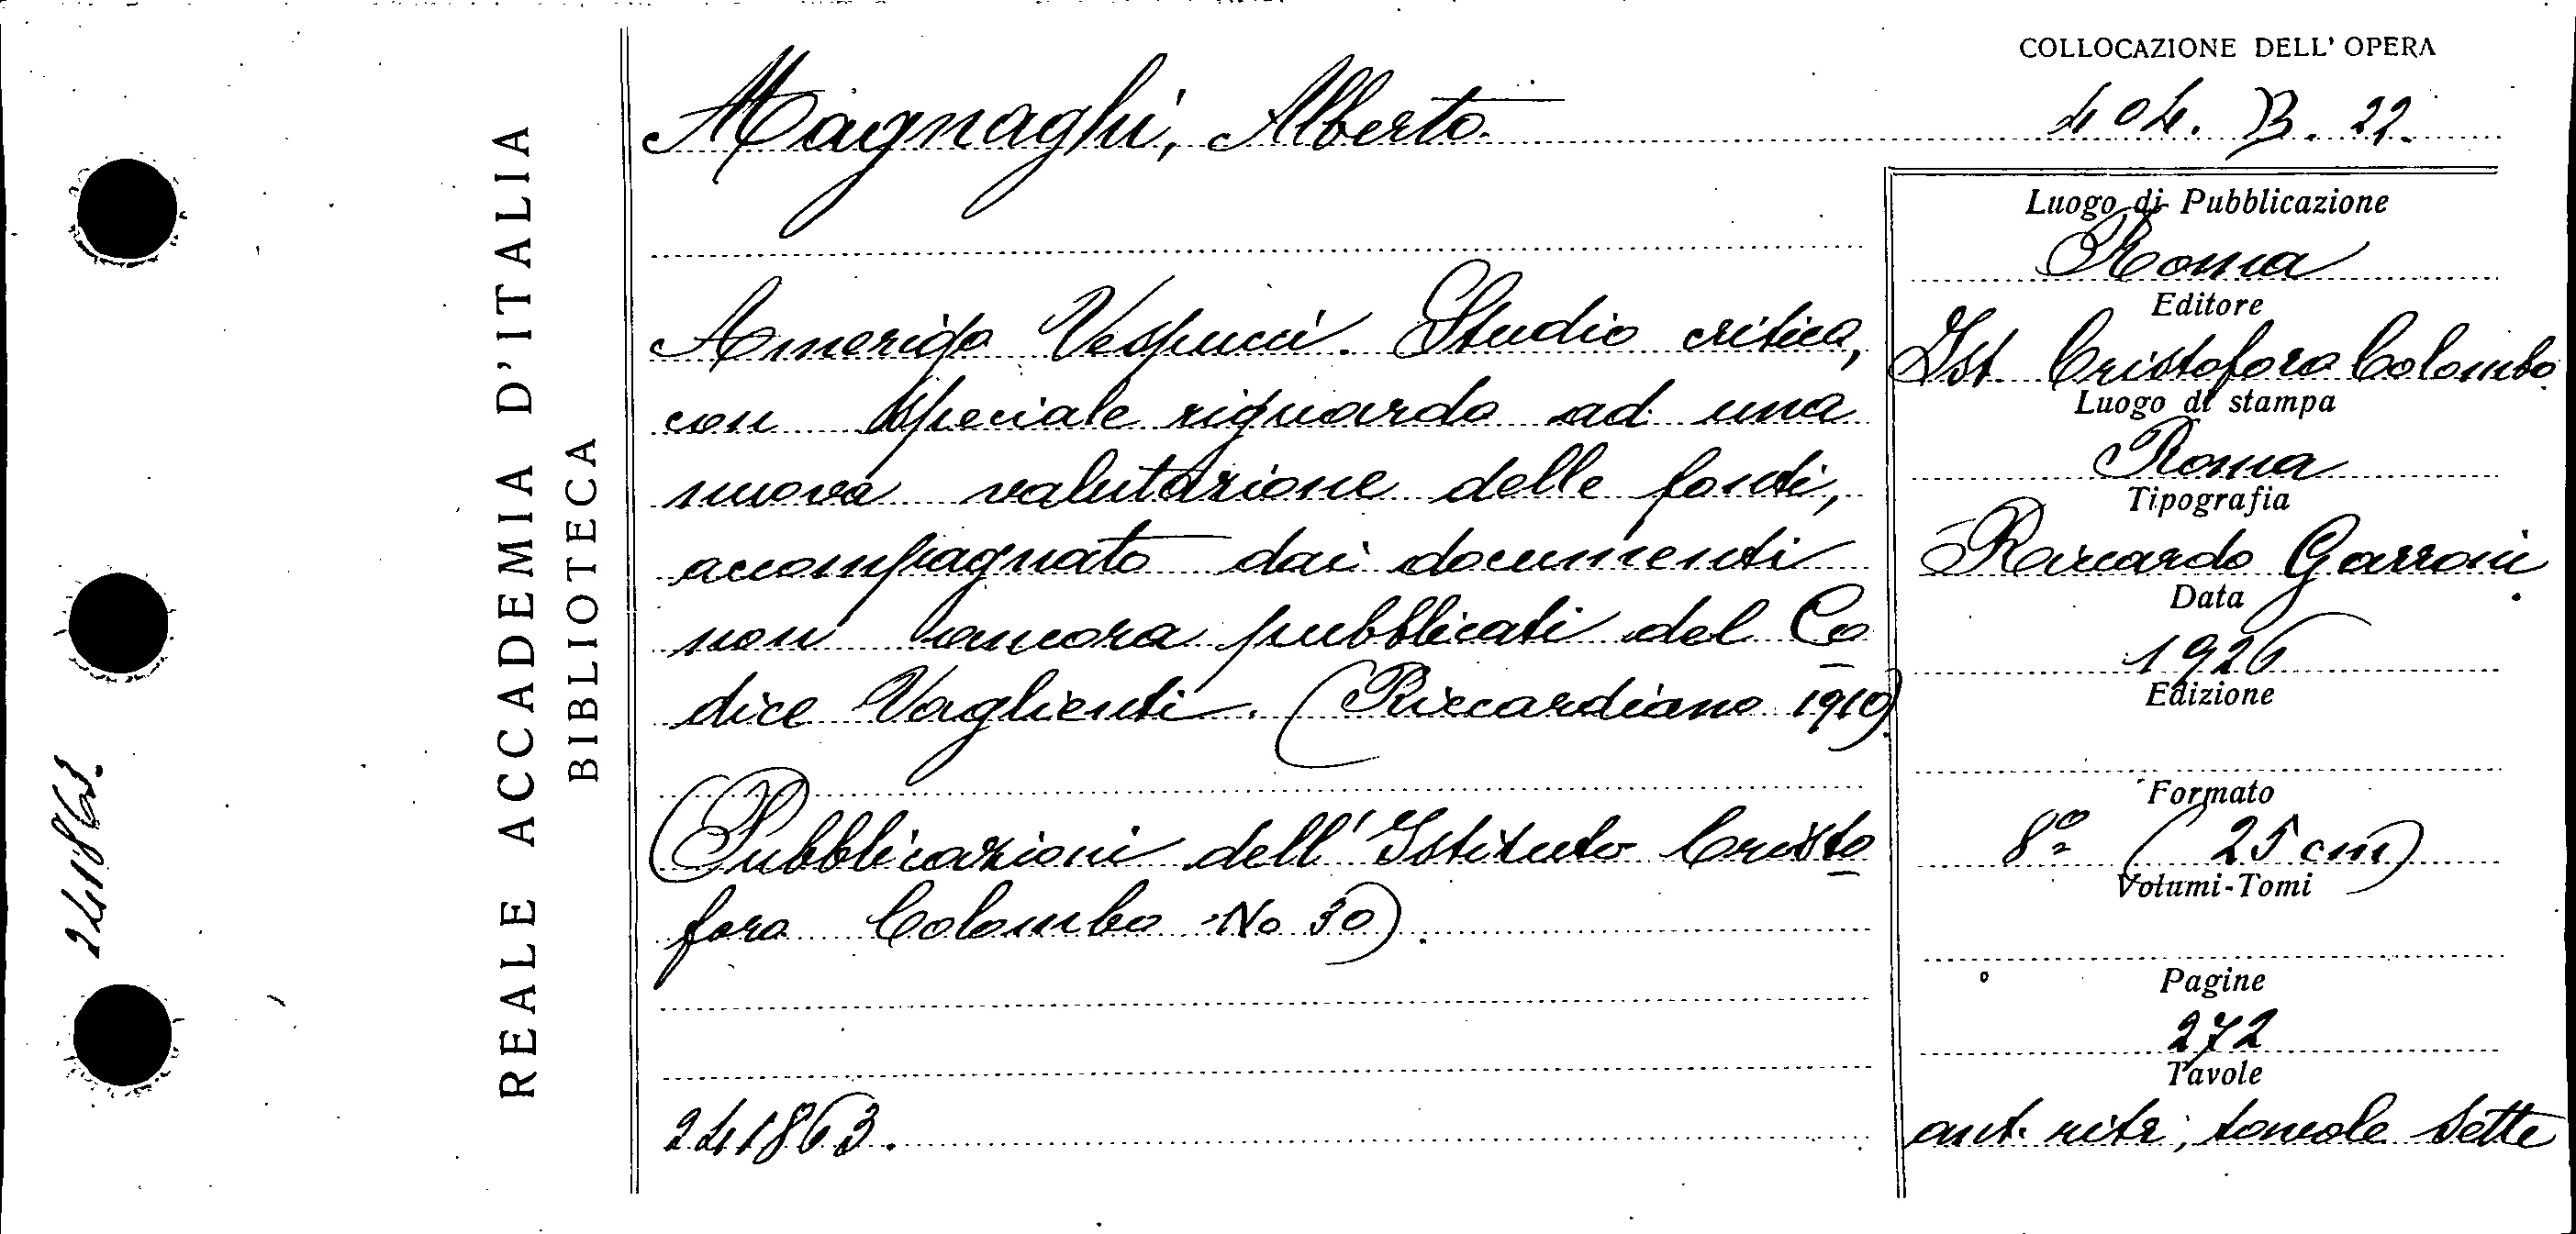 COLLOCAZIONE DELL' OPERA
Magnaghi, Alberto.
404. B. 22.
REALE ACCADEMIA D'ITALIA
BIBLIOTECA
241863.
Amerigo Vespucci. Studio critico,
con speciale riguardo ad una
nuova valutazione delle fonti,
accompagnato dai documenti
non ancora pubblicati del Co
dice Vaglienti. (Riccardiano 1910).
(Pubblicazioni dell' Istituto Cristo
foro Colombo No 30).
241863.
Luogo di Pubblicazione
Roma
Editore
Ist. Cristoforo Colombo
Luogo di stampa
Roma
Tipografia
Riccardo Garroni
Data
1926
Edizione
Formato
8º (25 cm)
Volumi-Tomi
Pagine
272
Tavole
ant. ritr; tavole sette